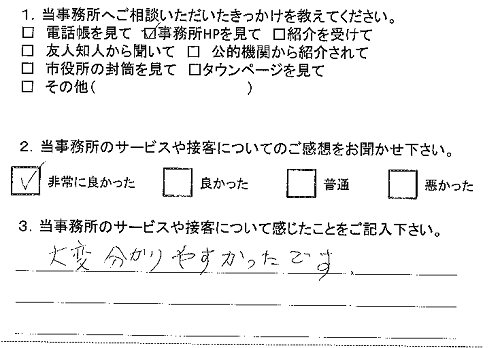 1. 当事務所へご相談いただいたきっかけを教えてください。
□ 電話帳を見て ☑事務所HPを見て □紹介を受けて
□ 友人知人から聞いて □ 公的機関から紹介されて
□ 市役所の封筒を見て □タウンページを見て
□ その他( )
2. 当事務所のサービスや接客についてのご感想をお聞かせ下さい。
☑ 非常に良かった □ 良かった □ 普通 □ 悪かった
3. 当事務所のサービスや接客について感じたことをご記入下さい。
大変分かりやすかったです。